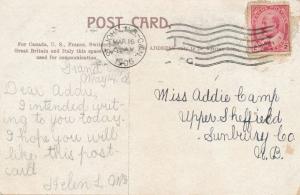 POST CARD.
For Canada, U. S., France,
Great Britain and Italy this space
used for communication.
MAR 16
1906
Dear Addie,
I intended writ-
ing to you today.
I hope you will
like this post-
card
Helen L.
Miss Addie Camp
Upper Sheffield
Sunbury Co
N.B.